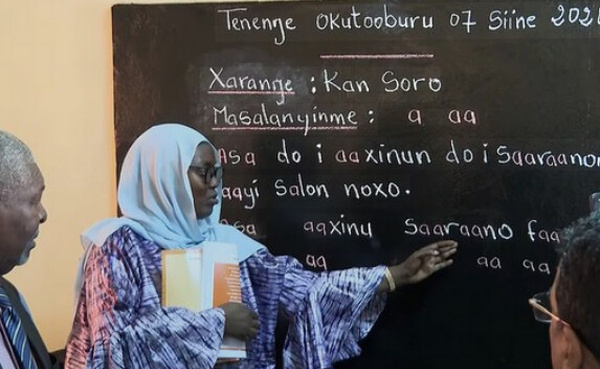 Tenenŋe Okutooburu 07 Siine 202
Xaranŋe : Kan Soro
Masalanyinme : a aa
Asa do i aaxinun do i Saaraano
aayi Salon noxo.
Asa aaxinu Saaraano faa
aa aa aa